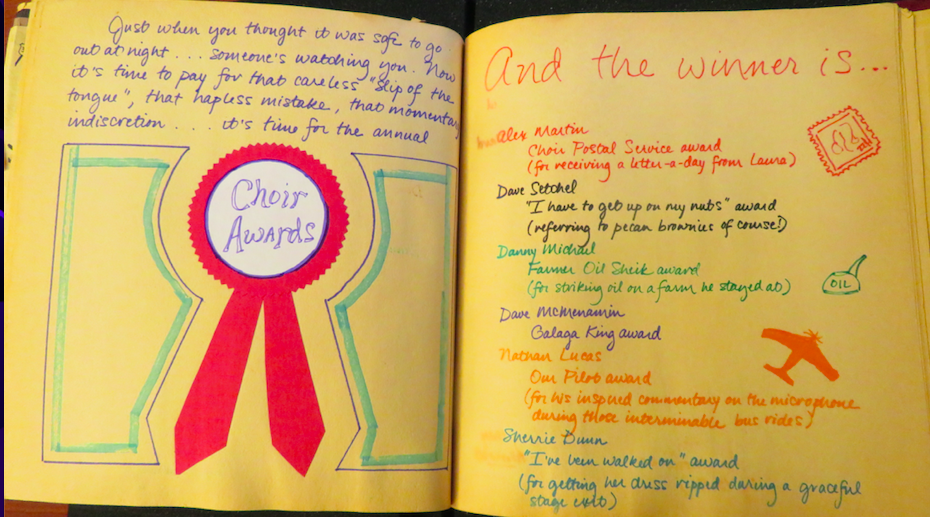 Just when you thought it was safe to go
out at night . . . someone's watching you. Now
it's time to pay for that careless "slip of the
tongue", that hapless mistake, that momentary
indiscretion . . . . it's time for the annual
Choir
Awards
And the winner is...
Alex Martin
Choir Postal Service award
(for receiving a letter-a-day from Laura)
Dave Setchel
"I have to get up on my nubs" award
(referring to pecan brownies of course!)
Danny Michael
Farmer Oil Sheik award
(for striking oil on a farm he stayed at)
OIL
Dave McMenamin
Galaga King award
Nathan Lucas
Our Pilot award
(for his inspired commentary on the microphone
during those interminable bus rides)
Sherrie Dunn
"I've been walked on" award
(for getting her dress ripped during a graceful
stage exit)